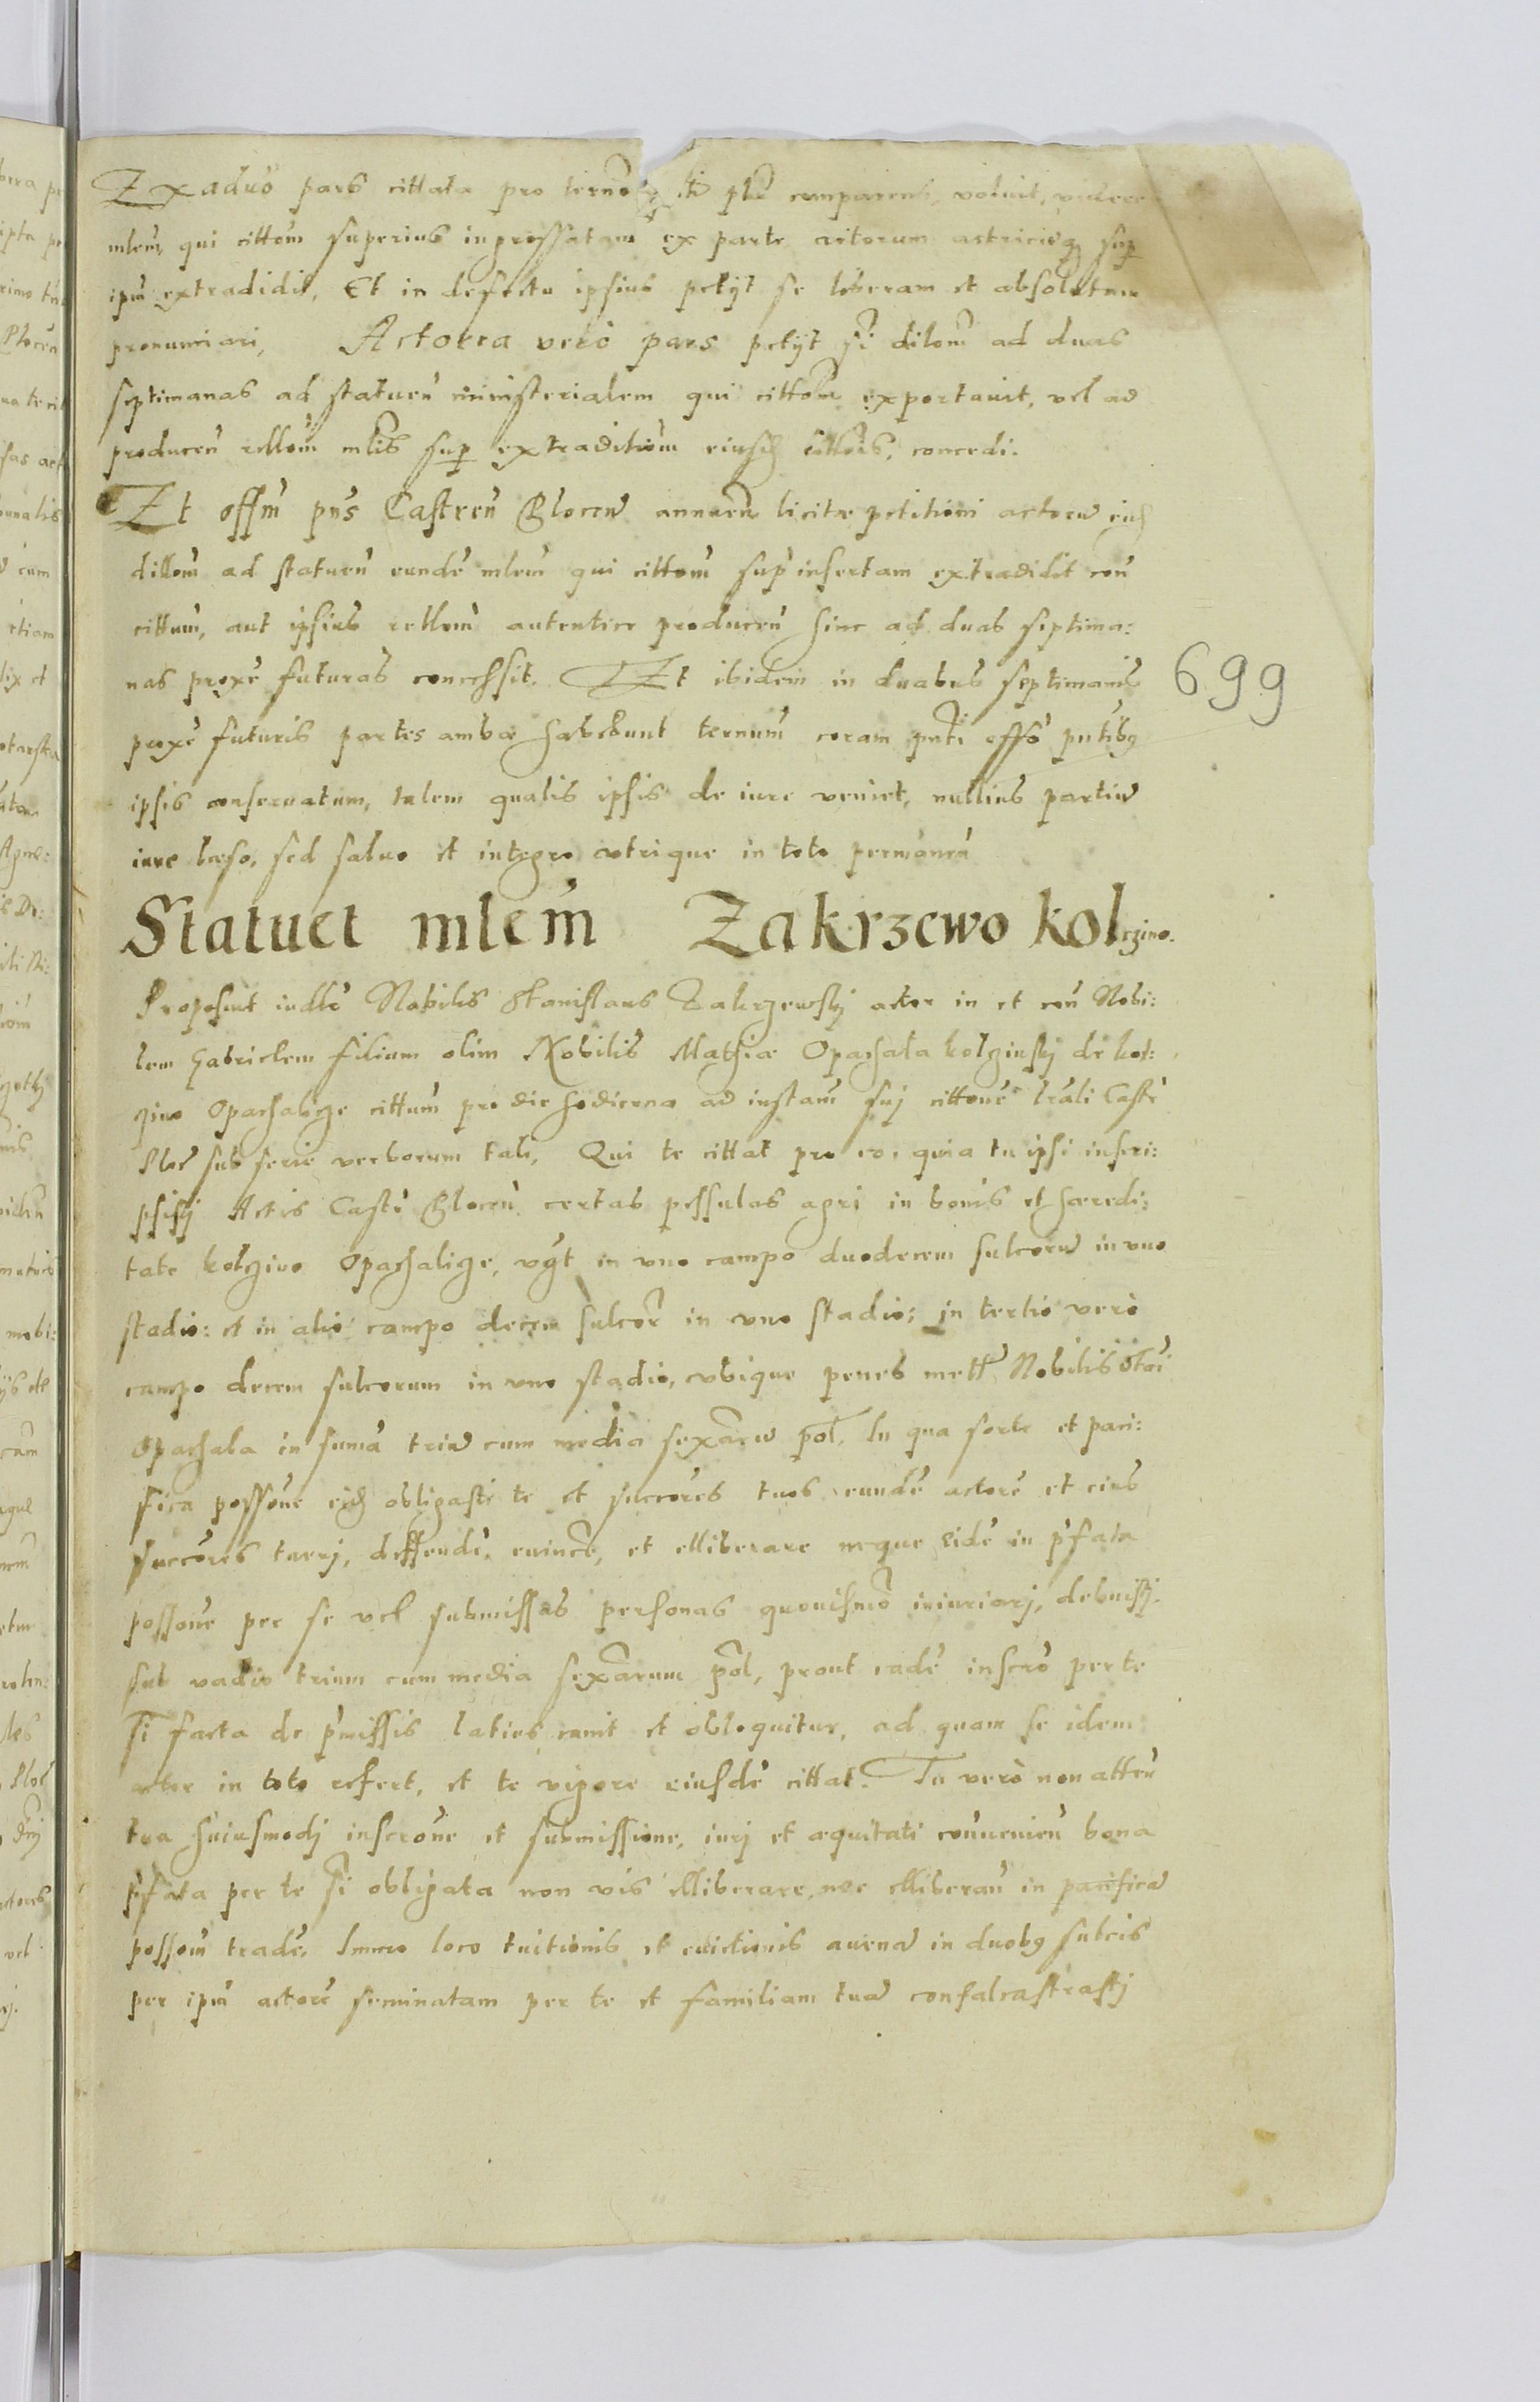 Exaduo pars cittata pro termo plr comparens, voluit, videre
mlem, qui cittom superius ingrossatam ex parte actorum actricisq sup
ipm extradidit, Et in defectu ipsius petijt se liberam et absolutam
pronunciari, Actorea vero pars petijt si dilom ad duas
septimanas ad statuen ministerialem qui cittom exportauit, vel ad
producen rellom mlis sup extraditiom eiusd cittois, concedi.
Et offm pns Castren Plocen annuen licitæ petitioni actorea eid
dillom ad statuen eunde mlem qui cittom sup insertam extradidit con
cittum, aut ipsius rellom autentice producen hinc ad duas septima:
nas proxe futuras concessit. Et ibidem in duabus septimanis
699
proxe futuris partes ambæ habebunt termum coram pnti offo pntibq
ipsis conseruatum, talem qualis ipsis de iure veniet, nullius partiu
iure læso, sed saluo et integro utrique in toto permanen
Statuet mlem Zakrzewo kolczino.
Proposuit iudlr Nobilis Stanislaus Zakrzewskj actor in et con Nobi:
lem Gabrielem filium olim Nobilis Mathiæ Opachala kolczinskj de kol:
zino Opachalicze cittum pro die hodierna ad instam suj cittone lrali Castr
Ploc sub serie verborum tali, Qui te cittat pro eo, quia tu ipsi inscri:
psistj Actis Castr Plocen certas pessulas agri in bonis et hæredi:
tate kolczino Opachalicze, vgt in vno campo duodecem sulcoru in vno
stadio: et in alio campo decem sulcor in vno stadio; in tertio vero
campo decem sulcorum in vno stadio, vbique penes mett Nobilis Stai
Opachala in suma triu cum media sexaru pol, In qua sorte et paci:
fica possone eid obligasti te et succores tuos eunde actore et eius
succores tuerj, deffende, euince, et elliberare neque eide in pfata
possone per se vel submissas personas quouismo iniuriarj, debuistj
sub vadio trium cum media sexarum pol, prout eade inscro per te
si facta de pmissis latius canit et obloquitur, ad quam se idem
actor in toto refert, et te vigore eiusde cittat. Tu vero non atten
tua huiusmodj inscrone et submissione, iurj et æquitati conuenien bona
pfata per te si obligata non vis elliberare, nec elliberan in pacifica
possom trade, Immo loco tuitionis et euictionis auena in duobq sulcis
per ipm actore seminatam per te et familiam tua confalcastrastj